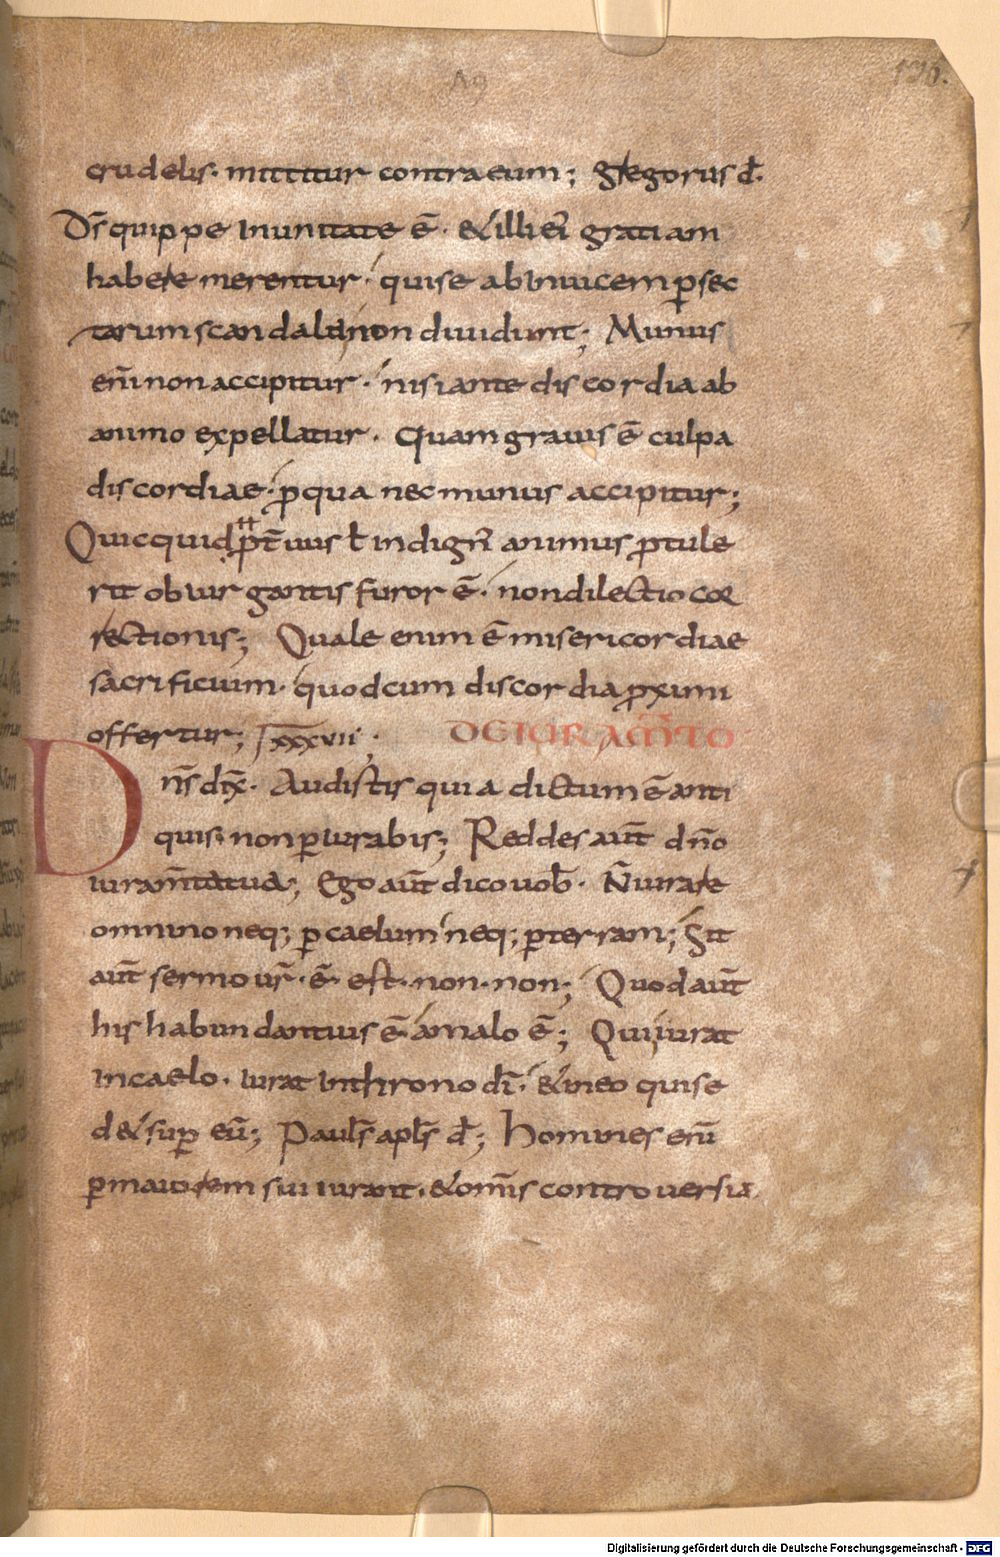 A9
126.
crudelis· mittitur contra eum; gregorus d̄.
Dr̄ quippe in unitate ē· & illi ei gratiam
habere merentur· qui se ab inuicem p̄ sec
tarum scandala non diuidunt; Munus
eni̅ non accipitur· nisi ante discordia ab
animo expellatur· Quam grauis ē culpa
discordiae· p̱ qua nec munus accipitur;
Quicquid p̄t̄uus ł indign̄ animus p̱tule
rit obiurgantis furor ē· non dilectio cor
rectionis; Quale enim ē misericordiae
sacrificium· quod cum discordia p̱ximi
offertur; xxxvii· DE IURAM̄TO
Dn̄s dix̄· Audistis quia dictum ē anti
quis· non p̱iurabis; Reddes aut̄ dn̄o
iuram̄ta tua; Ego aut̄ dico uob̄· N̄ iurare
omnino neq; p̱ caelum neq; p̱ terram; Sit
aut̄ sermo ur̄· ē· est· non· non; Quod aut̄
his habundantius ē· a malo ē; Qui iurat
in caelo· iurat in throno dī· & in eo qui se
d& sup̱ eū; Paul̄s apl̄s d̄; Homines eni̅
p̱ maiorem sui iurant· & om̄s controuersia
Digitalisierung gefördert durch die Deutsche Forschungsgemeinschaft - DFG